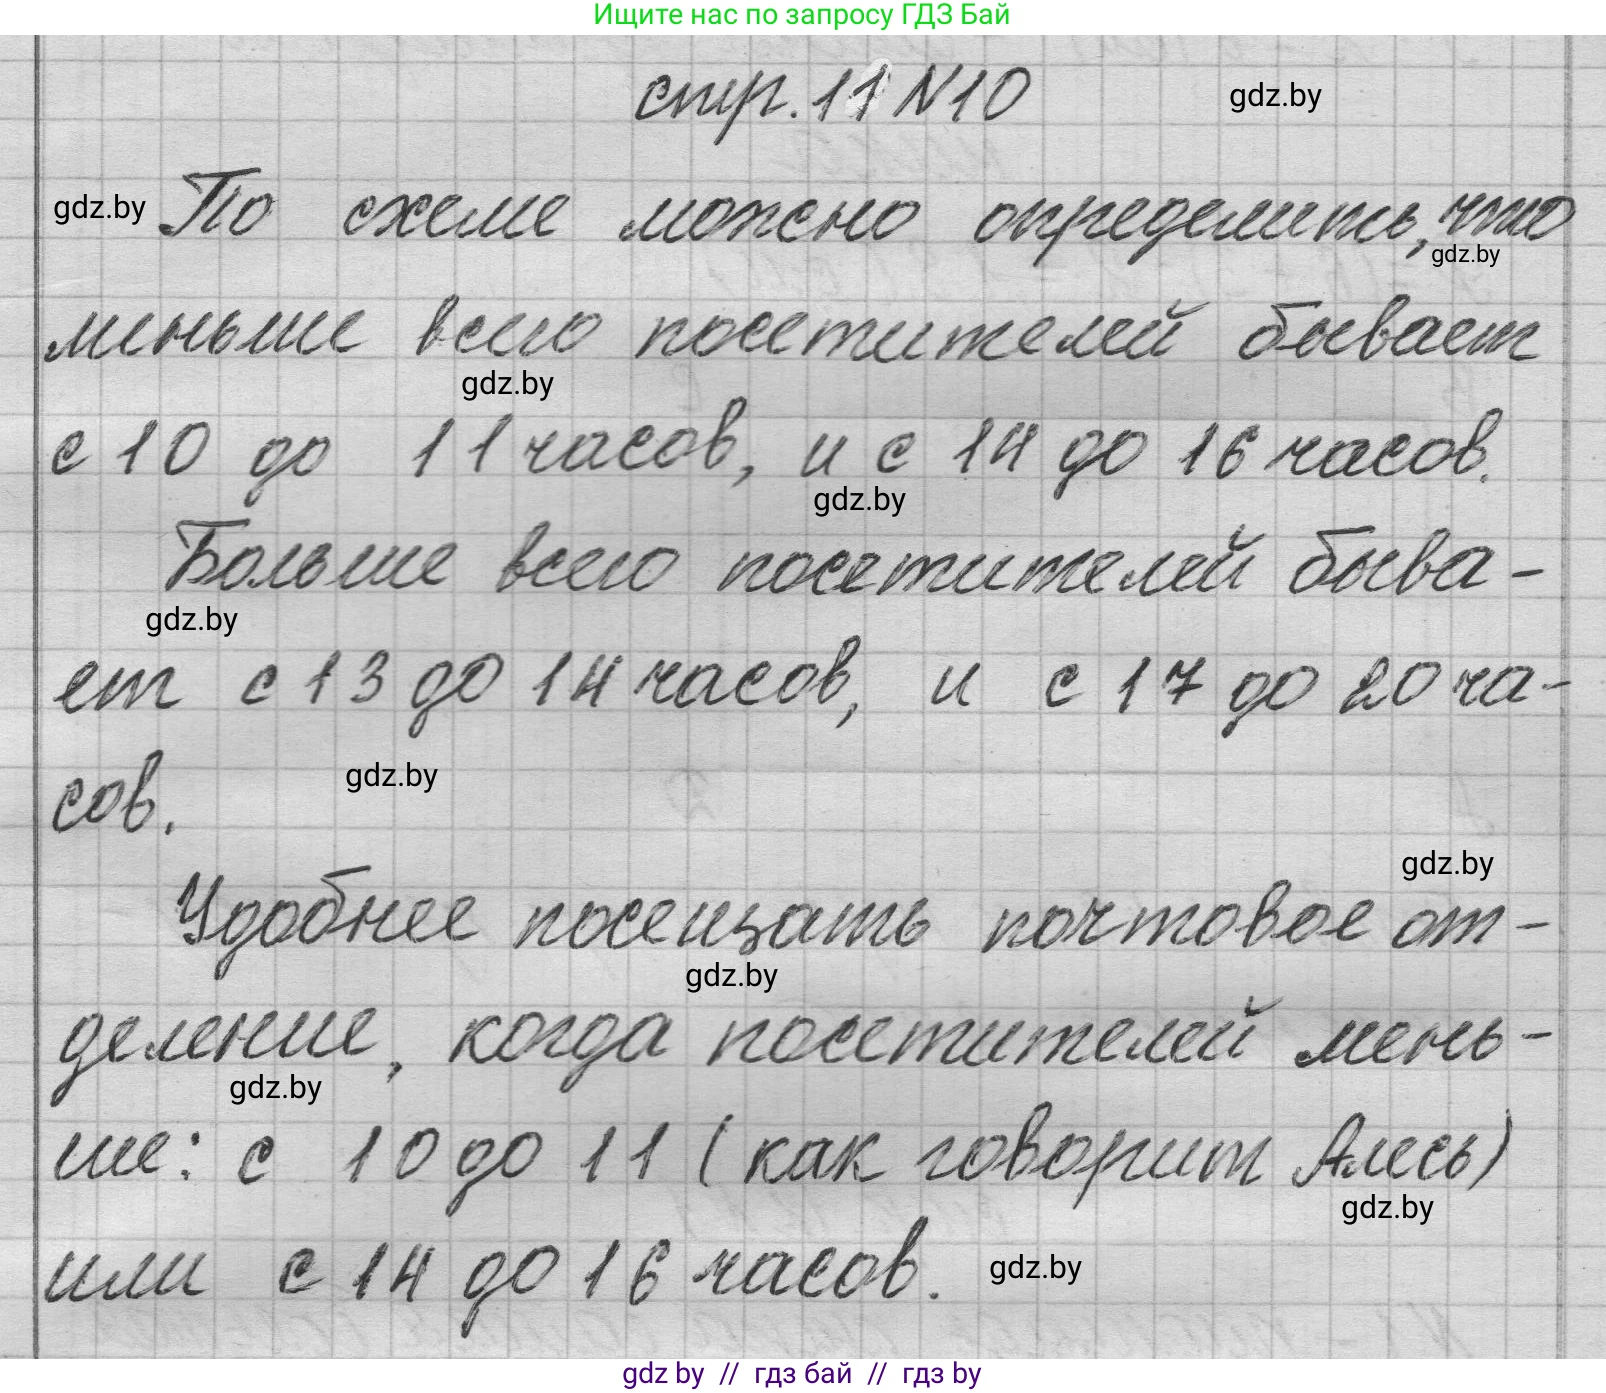 Ищите нас по запросу ГДЗ Бай
стр. 11 N10
gdz.by
gdz.by
По схеме можно определить, что
gdz.by
меньше всего посетителей бывает
gdz.by
с 10 до 11 часов, и с 14 до 16 часов.
gdz.by
Больше всего посетителей быва-
gdz.by
ет с 13 до 14 часов, и с 17 до 20 ча-
сов.
gdz.by
gdz.by
Удобнее посещать почтовое от-
gdz.by
деление, когда посетителей мень-
gdz.by
ше: с 10 до 11 (как говорит Алесь)
gdz.by
или с 14 до 16 часов.
gdz.by
gdz by // гдз бай // гдз by